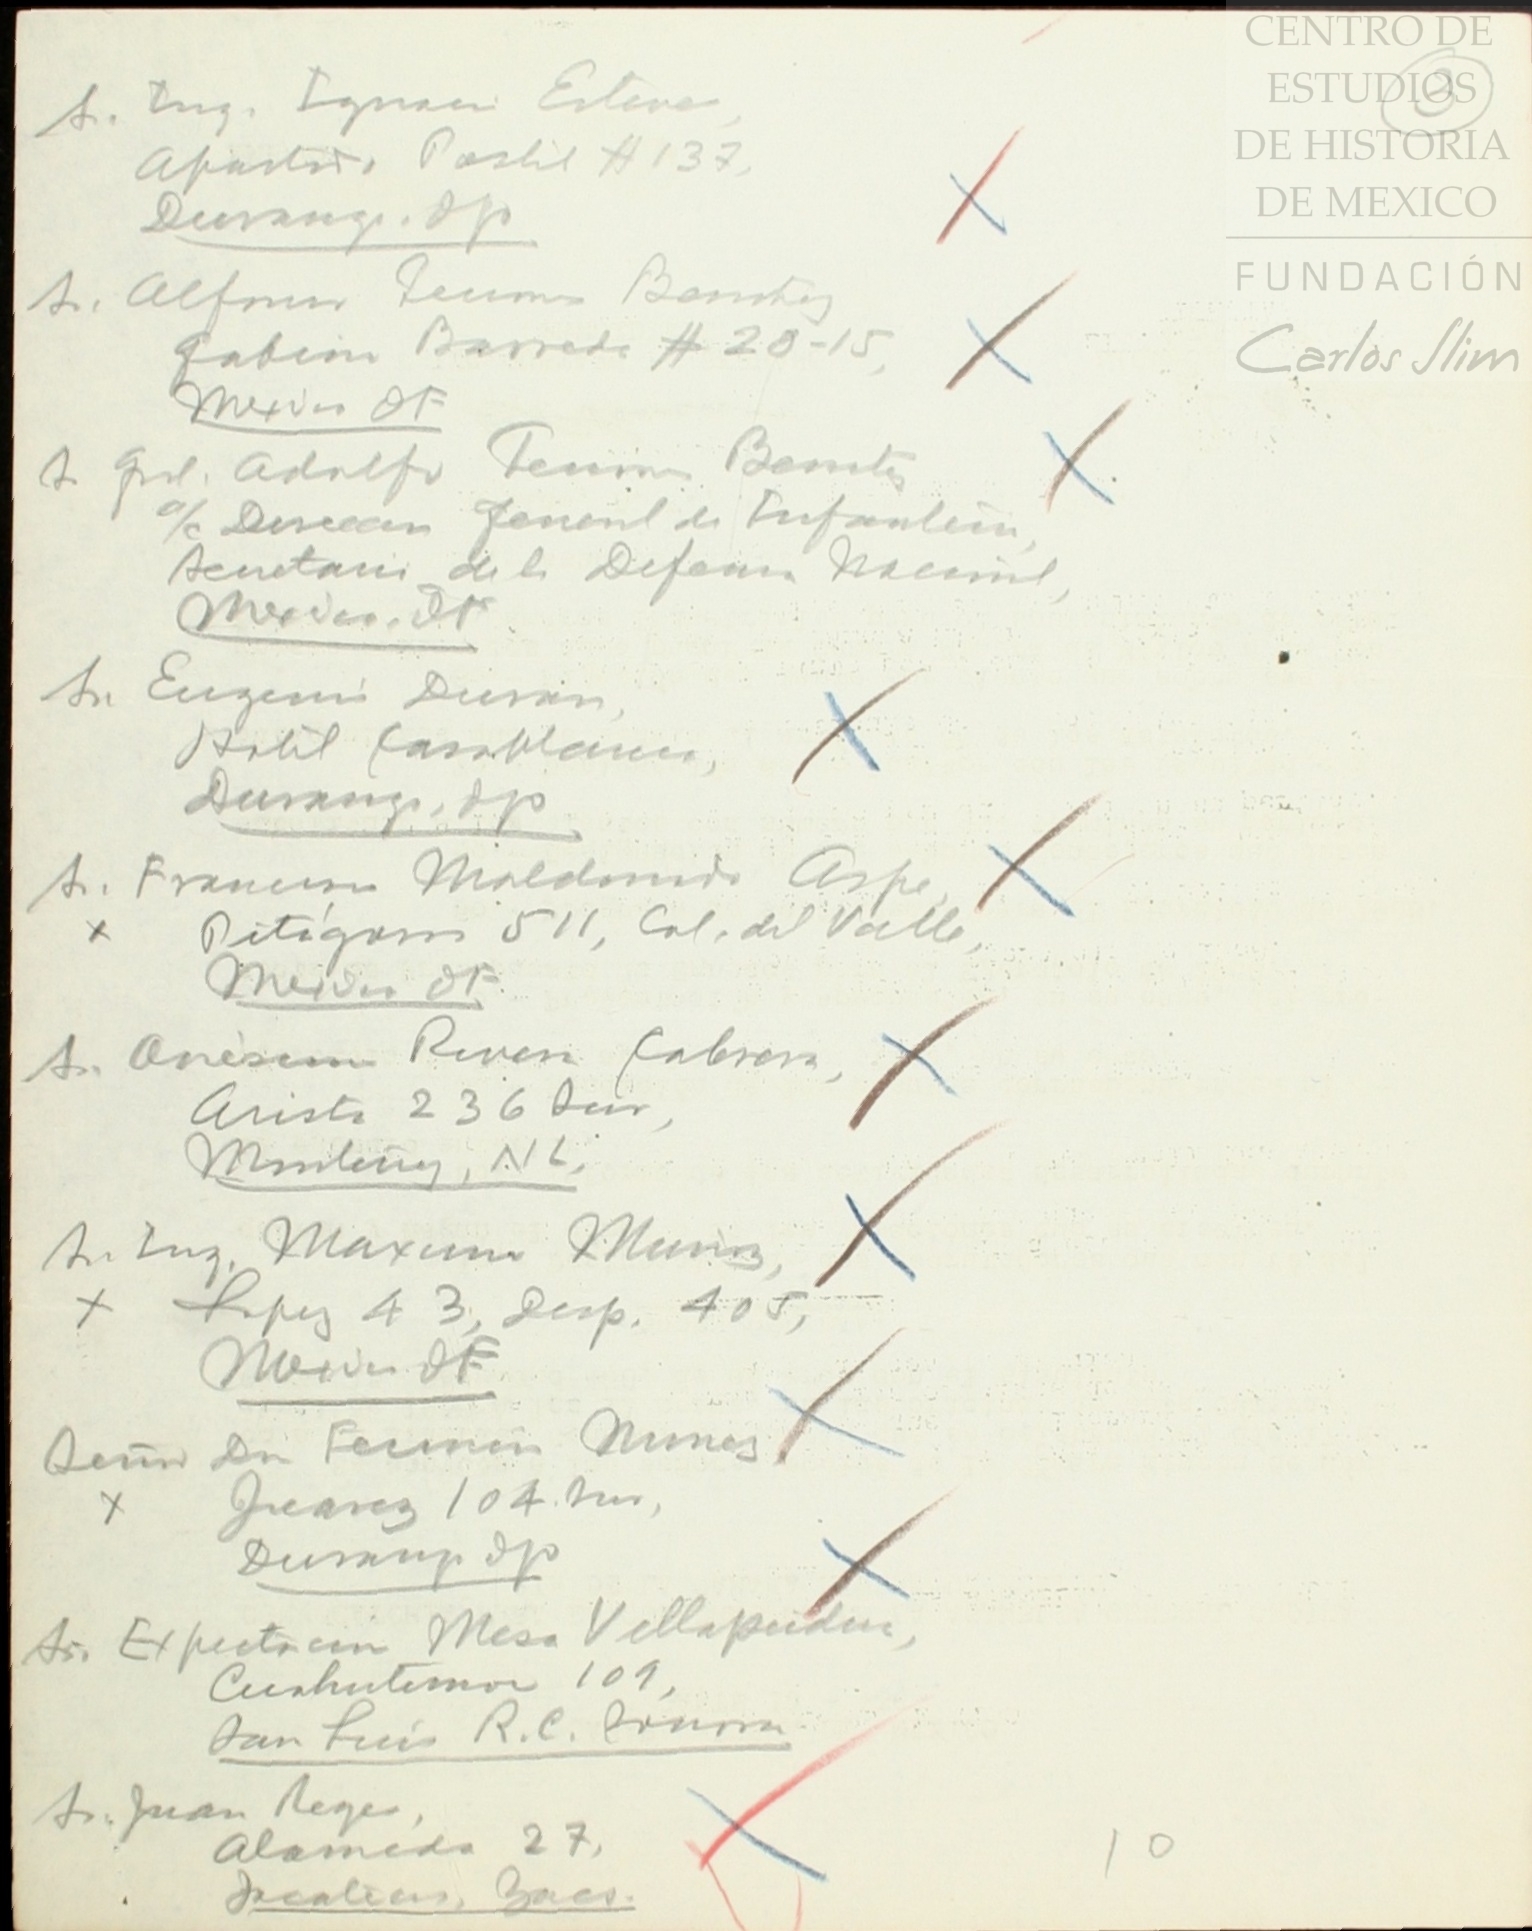 CENTRO DE
ESTUDIOS
DE HISTORIA
DE MEXICO
FUNDACIÓN
Carlos Slim
3
Sr. Ing. Ignacio Esteve,
Apartado Postal #137,
Durango, Dgo
Sr. Alfonso Terrones Benitez
Gabino Barreda # 28-15,
Mexico DF
Sr Gral. Adolfo Terrones Benitez
a/c Direccion General de Infanteria,
Secretaria de la Defensa Nacional,
Mexico. DF
Sr. Eugenio Duran,
Hotel Casablanca,
Durango, Dgo
Sr. Francisco Maldonado Aspe,
x Pitágoras 511, Col. del Valle,
Mexico DF.
Sr. Onésimo Rivera Cabrera,
Arista 236 Sur,
Monterrey, NL.
Sr. Ing. Maximo Muñoz,
x Lopez 43, Desp. 405,
Mexico DF
Señor Don Fermin Nunez
x Juarez 104 Sur,
Durango Dgo
Sr. Expectacion Mesa
Cuahutemoc 109,
San Luis R.C. Sonora
Sr. Juan Reyes,
Alameda 27,
Zacatecas, Zacs.
10